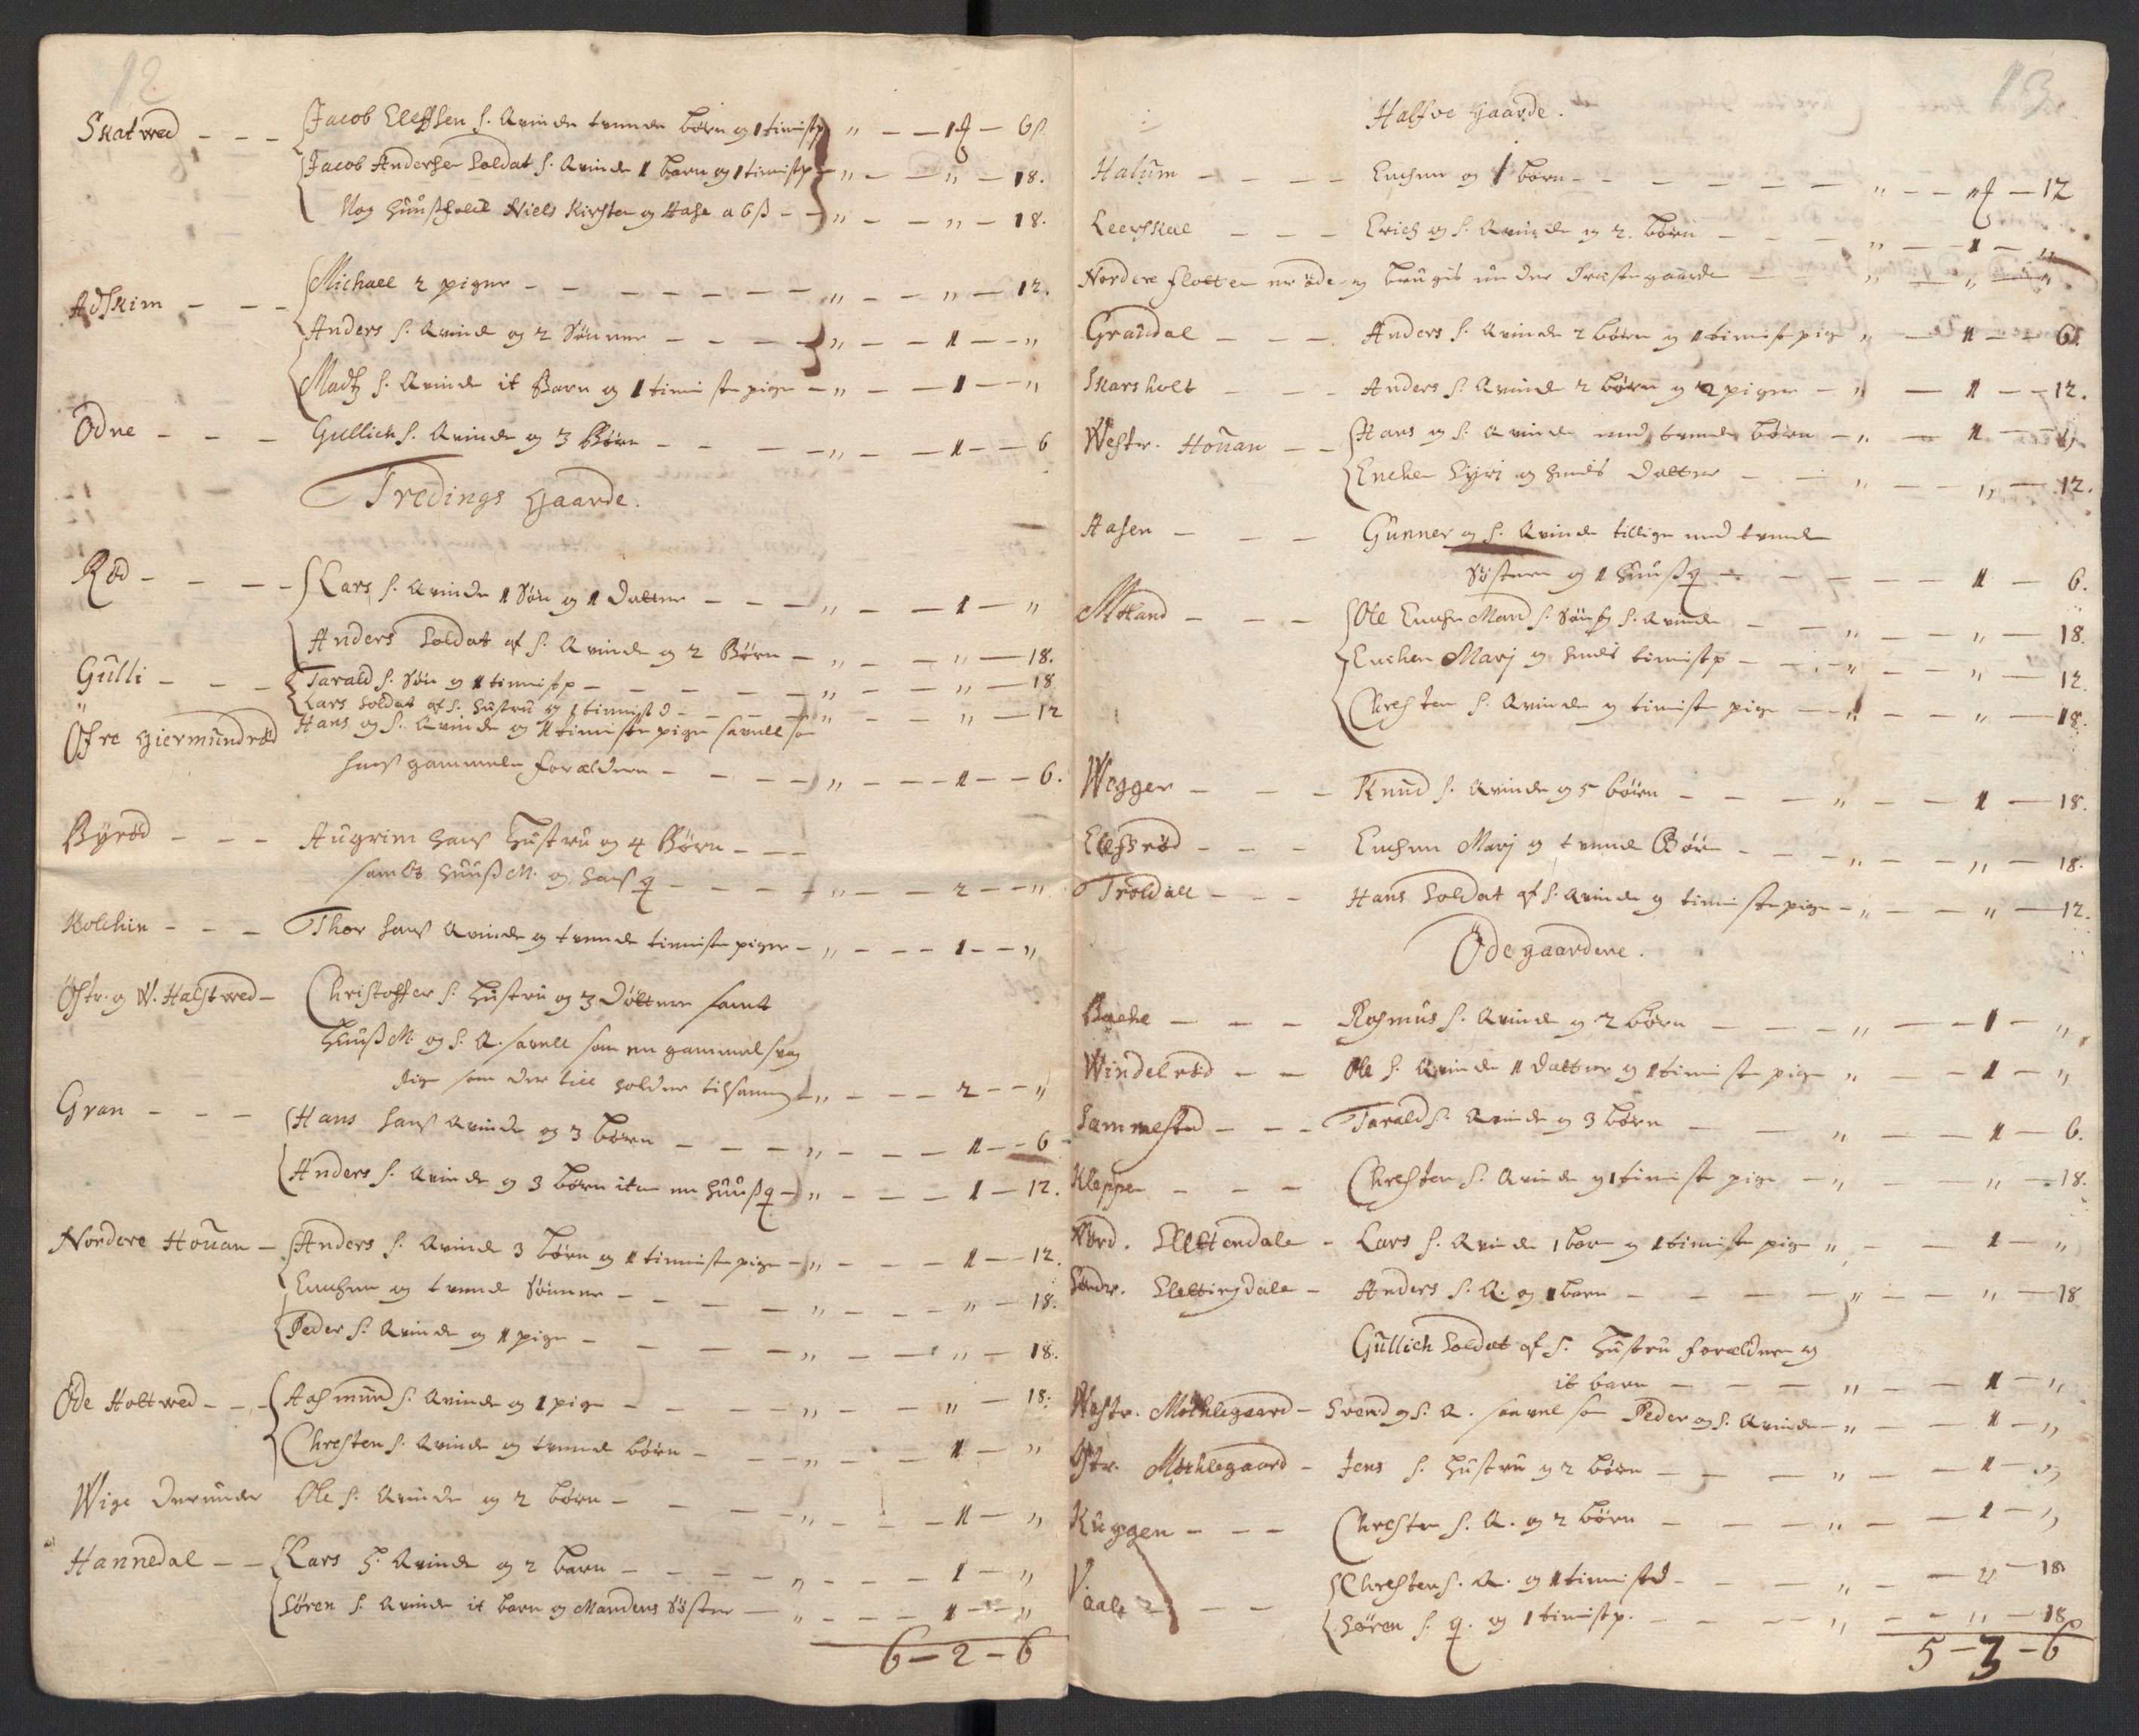 12
Skatwed - - - Jacob Elefsen s. Qvinde tvende børn og 1 tienistp " - - 1 ƒ - 6 s.
Jacob Andersen Soldat s. Qvinde 1 barn og 1 tienistp - " - - " - 18.
Nog huusfolck Niels Kirsten og Aase a 6 ß - - " - - " - 18.
Adskim - - - Michael 2 piger - - - - - - - " - - " - 12.
Anders s. Qvinde og 2 Sønner - - - - " - - 1 - - "
Madtz s. Qvinde it Barn og 1 tieniste pige - " - - 1 - - "
Odne - - - Gullich s. Qvinde og 3 Børn - - - - " - - 1 - - 6
Tredings Gaarde.
Rød - - - - Lars s. Qvinde 1 Søn og 1 Datter - - - " - - 1 - "
Anders Soldat af s. Qvinde og 2 Børn - " - - " - 18.
Gulli - - - Tarald s. Søn og 1 tienistp - - - - - - " - - " - 18
" Lars Soldat af s. hustru og 1 tienist d - - - - " - - " - 12
Øfre Giermundrød Hans og s. Qvinde og 1 tieniste pige savell som
hans gammele forældere - - - - - " - - - 1 - - 6.
Byrød - - - Augrim hans Hustru og 4 Børn - - -
samt huuß M. og hans q - - - - " - - 2 - - "
Kolchin - - - Thor hans Qvinde og tvende tieniste piger - " - - - 1 - - "
Østr. og W. Halstwed - Christoffer s. Hustru og 3 Døttre samt
Huuß M. og s. Q. savell som en gammel svag
pige som der till holder tilsammen " - - - 2 - - "
Gran - - - Hans hans Qvinde og 3 børn - - - - " - - - 1 - - 6
Anders s. Qvinde og 3 børn item en huuß q - " - - - 1 - 12.
Nordere Houan - Anders s. Qvinde 3 børn og 1 tieniste pige - " - - - 1 - - 12.
Enchen og tvende Sønner - - - - - " - - - " - 18.
Peder s. Qvinde og 1 pige - - - - - " - - " - 18.
Øde Holtwed - - - Aasmund s. Qvinde og 1 pige - - - - " - - " - 18.
Chresten s. Qvinde og tvende børn - - - " - - 1 - "
Wige derunder Ole s. Qvinde og 2 børn - - - - " - - - 1 - "
Hannedal - - Lars H. Qvinde og 2 barn - - - - " - - - 1 - "
Søren s. Qvinde it barn og Mandens Søster - " - - - 1 - - "
6 - 2 - 6
13
Halfve Gaarde.
Halum - - - - Enchen og 1 børn - - - - - - - " - - " ƒ - 12
Leerskal - - - Erich og s. Qvinde og 2 børn - - - - " - - 1 - "
Nordere Flotten er øde og brugis under Præstegaarden - - " - " - "
Graudal - - - Anders s. Qvinde 2 børn og 1 tieniste pige " - 1 - - 6 s.
Skarsholt - - - Anders s. Qvinde 2 børn og 2 piger - " - 1 - - 12.
Westr. Houan - - Hans og s. Qvinde med tvende børn - " - 1 - - 6
Enchen Syri og hendis datter - - - " - - " - 12.
Aasen - - - Gunner og s. Qvinde tillige med tvende
Søstere og 1 huuß q - - - - - - 1 - 6.
Moland - - - Ole Enche Mand s. Søn og s. Qvinde - - " - - " - 18.
Enchen Marj og hendis tienistp - - - " - - " - 12.
Chresten s. Qvinde og tieniste pige - - " - - " - 18.
Wegger - - - Knud s. Qvinde og 5 børn - - - - " - - 1 - 18.
Elefsrød - - - Enchen Marj og tvende Børn - - - - " - - " - 18.
Troldall - - - Hans Soldat af s. Qvinde og tieniste pige - " - - " - 12.
Øde gaardene.
Backe - - - Rasmus s. Qvinde og 2 børn - - - " - - 1 - "
Windelrød - - Ole s. Qvinde 1 datter og 1 tieniste pige " - - 1 - "
Sammestad - - - Tarald s. Qvinde og 3 børn - - " - - 1 - 6.
Kleppen - - - Chresten s. Qvinde og 1 tieniste pige - " - - " - 18.
Nord. Slettendale - Lars s. Qvinde 1 barn og 1 tieniste pige " - - 1 - "
Søndr. Slettingdale - Anders s. Q. og 1 barn - - - - - " - - " - 18
Gullich Soldat af s. Hustru forældere og
it barn - - - - " - - 1 - "
Westr. Mochlegaard - Svend og s. Q. saavel som Peder og s. Qvinde - " - - 1 - "
Østr. Mochlegaard - Jens s. Hustru og 2 børn - - - " - - 1 - "
Kuggen - - - Chresten s. Q. og 2 børn - - - " - - 1 - "
Vaale - - - Chresten s. Q. og 1 tienistd - - - " - - " - 18.
Søren s. q. og 1 tienistp. - - - - " - - " - 18
5 - 3 - 6